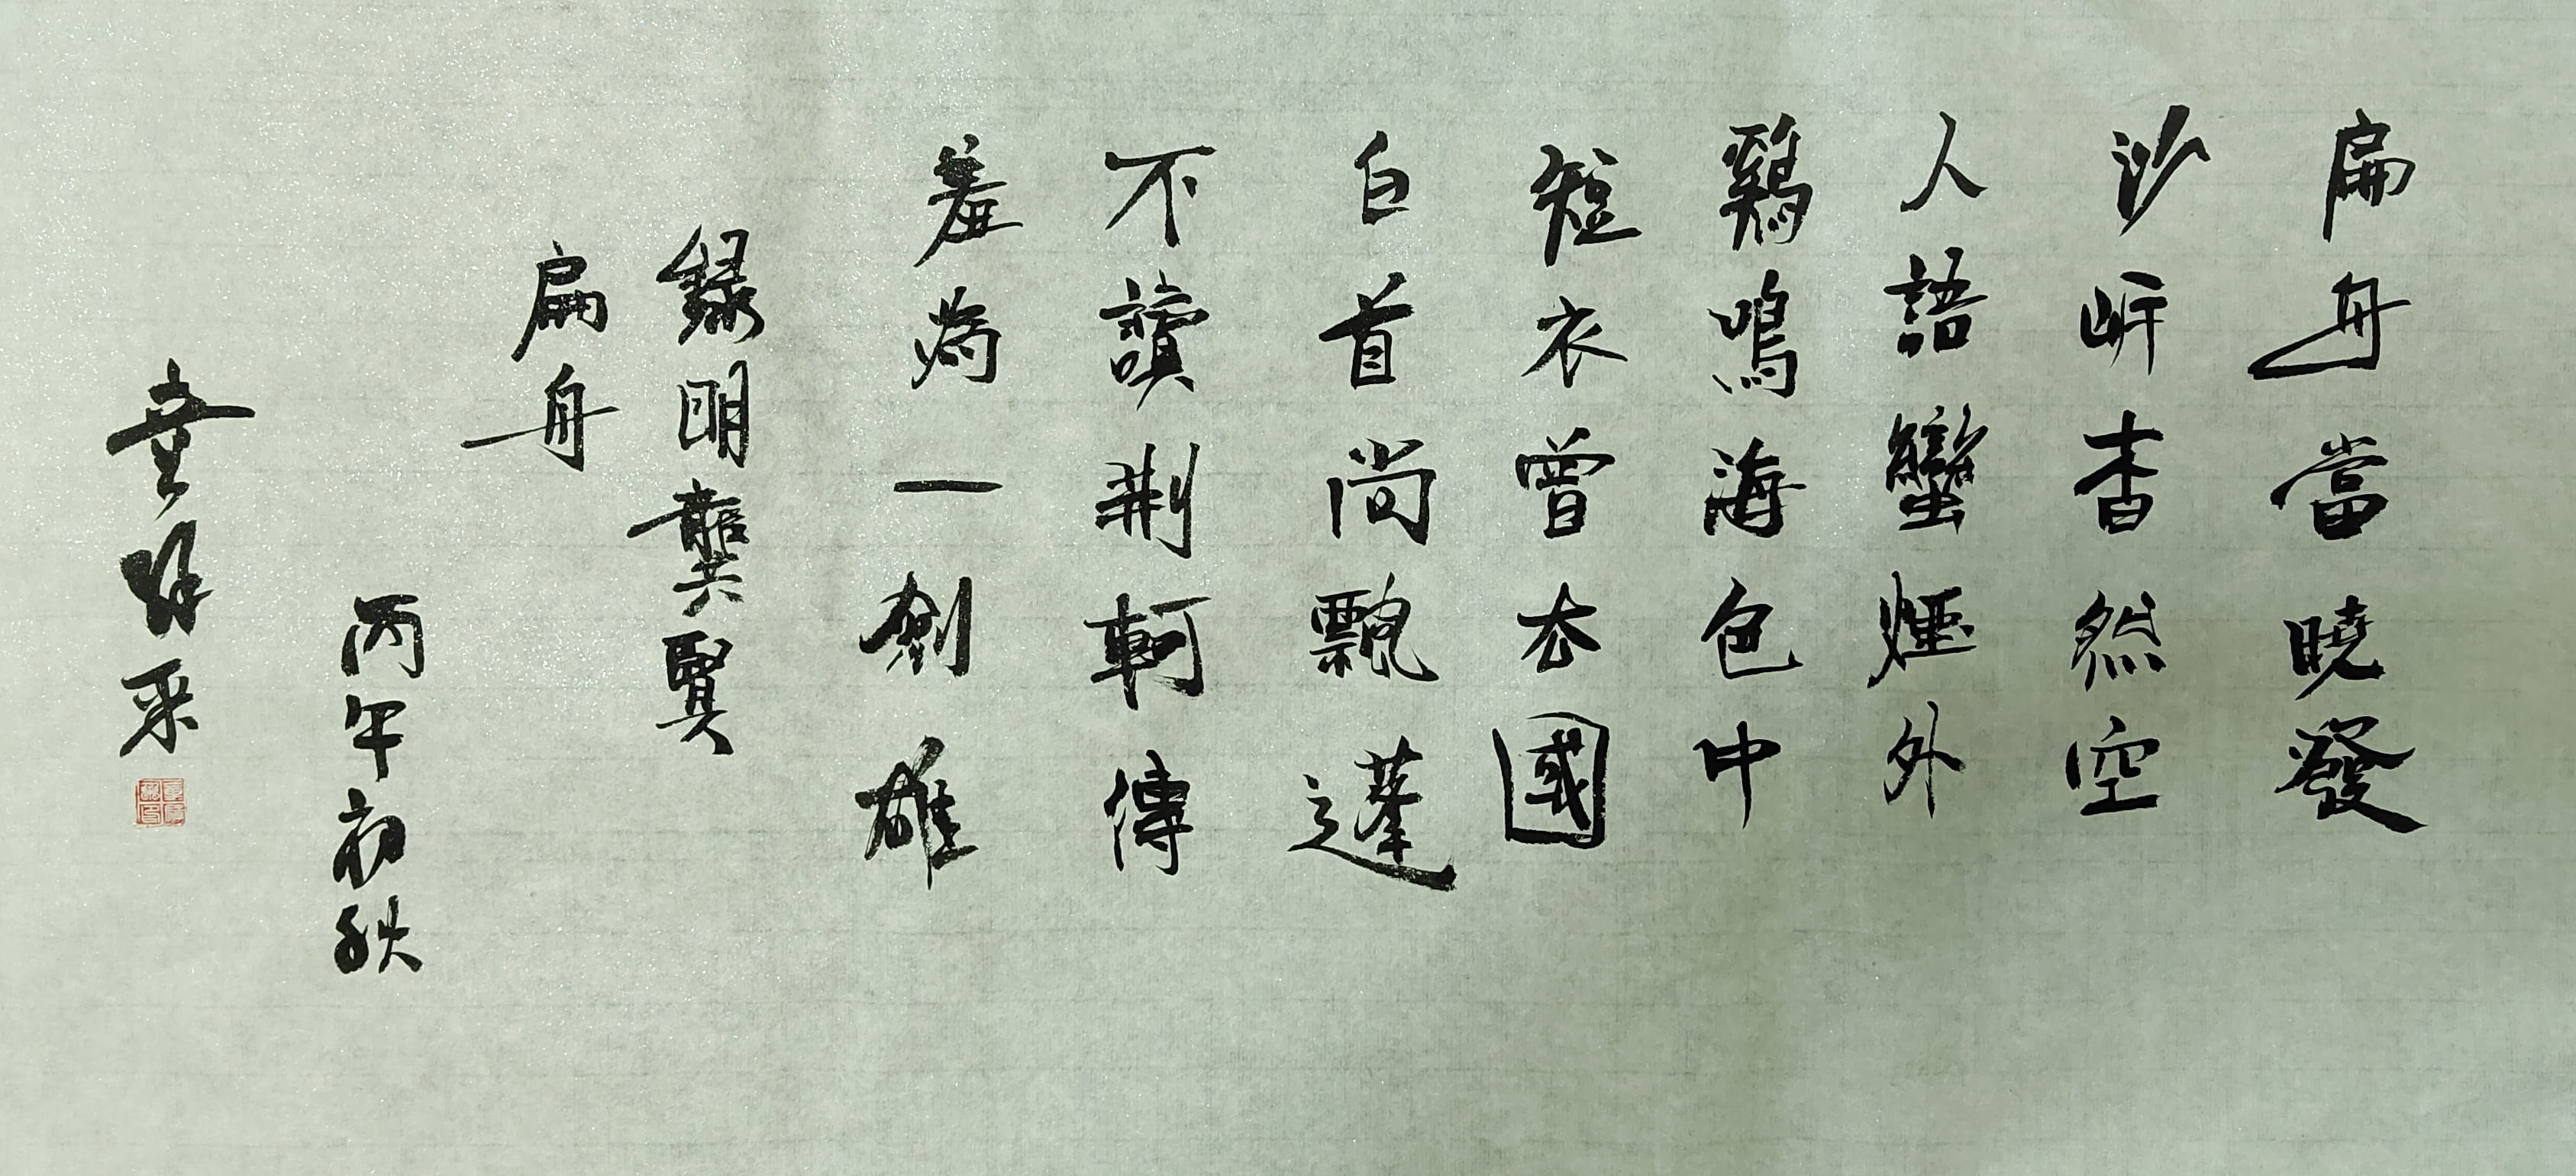 扁舟當曉發
沙岸杳然空
人語蠻煙外
鷄鳴海色中
短衣曾去國
白首尚飄蓬
不讀荆軻傳
羞為一劍雄
錄明龔賢
扁舟
丙午初秋